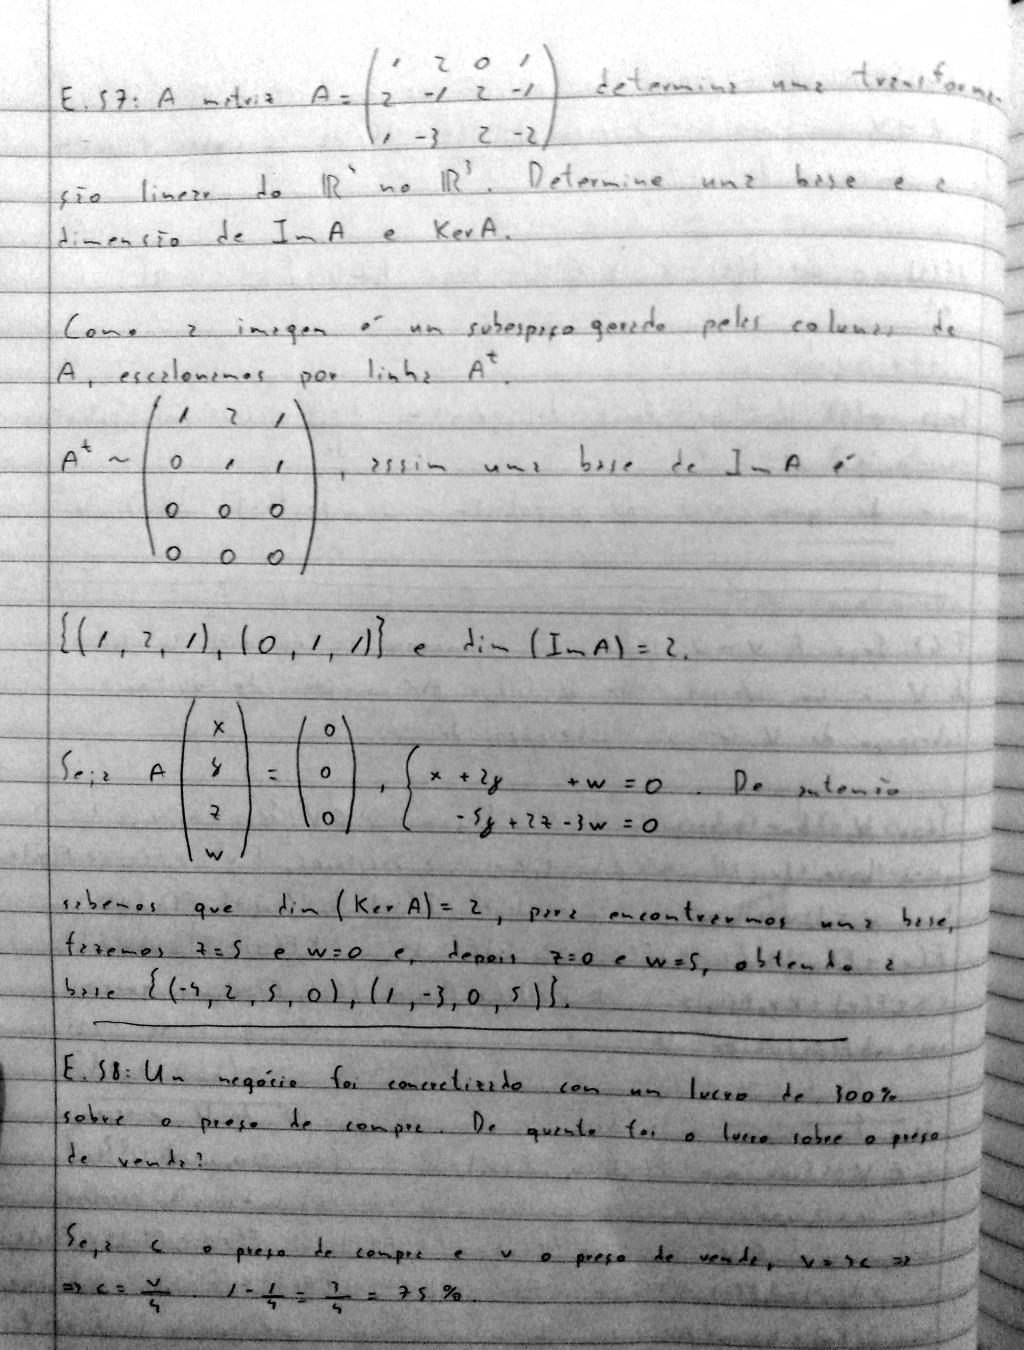 E. 57: A matriz A = (1 2 0 1 / 2 -1 2 -1 / 1 -3 2 -2) determina uma transforma-
ção linear do ℝ⁴ no ℝ³. Determine uma base e a
dimensão de Im A e Ker A.
Como a imagem é um subespaço gerado pelas colunas de
A, escalonamos por linha Aᵗ.
Aᵗ ~ (1 2 1 / 0 1 1 / 0 0 0 / 0 0 0), assim uma base de Im A é
{(1, 2, 1), (0, 1, 1)} e dim (Im A) = 2.
Seja A (x / y / z / w) = (0 / 0 / 0), { x + 2y + w = 0 / -5y + 2z - 3w = 0 . De antemão
sabemos que dim (Ker A) = 2, para encontrarmos uma base,
fazemos z = 5 e w = 0 e, depois z = 0 e w = 5, obtendo a
base {(-4, 2, 5, 0), (1, -3, 0, 5)}.
E. 58: Um negócio foi concretizado com um lucro de 300%
sobre o preço de compra. De quanto foi o lucro sobre o preço
de venda?
Seja c o preço de compra e v o preço de venda, v = 4c ⇒
⇒ c = v/4 . 1 - 1/4 = 3/4 = 75 %.